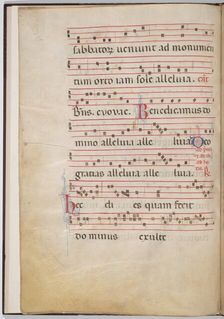 sabbatorum veniunt ad monumen
tum orto iam sole alleluia.
Bn̄s. evovae. Benedicamus do
mino alleluia alle luia
gratias alleluia alle luia.
Hec di es quam fecit
dominus exulte